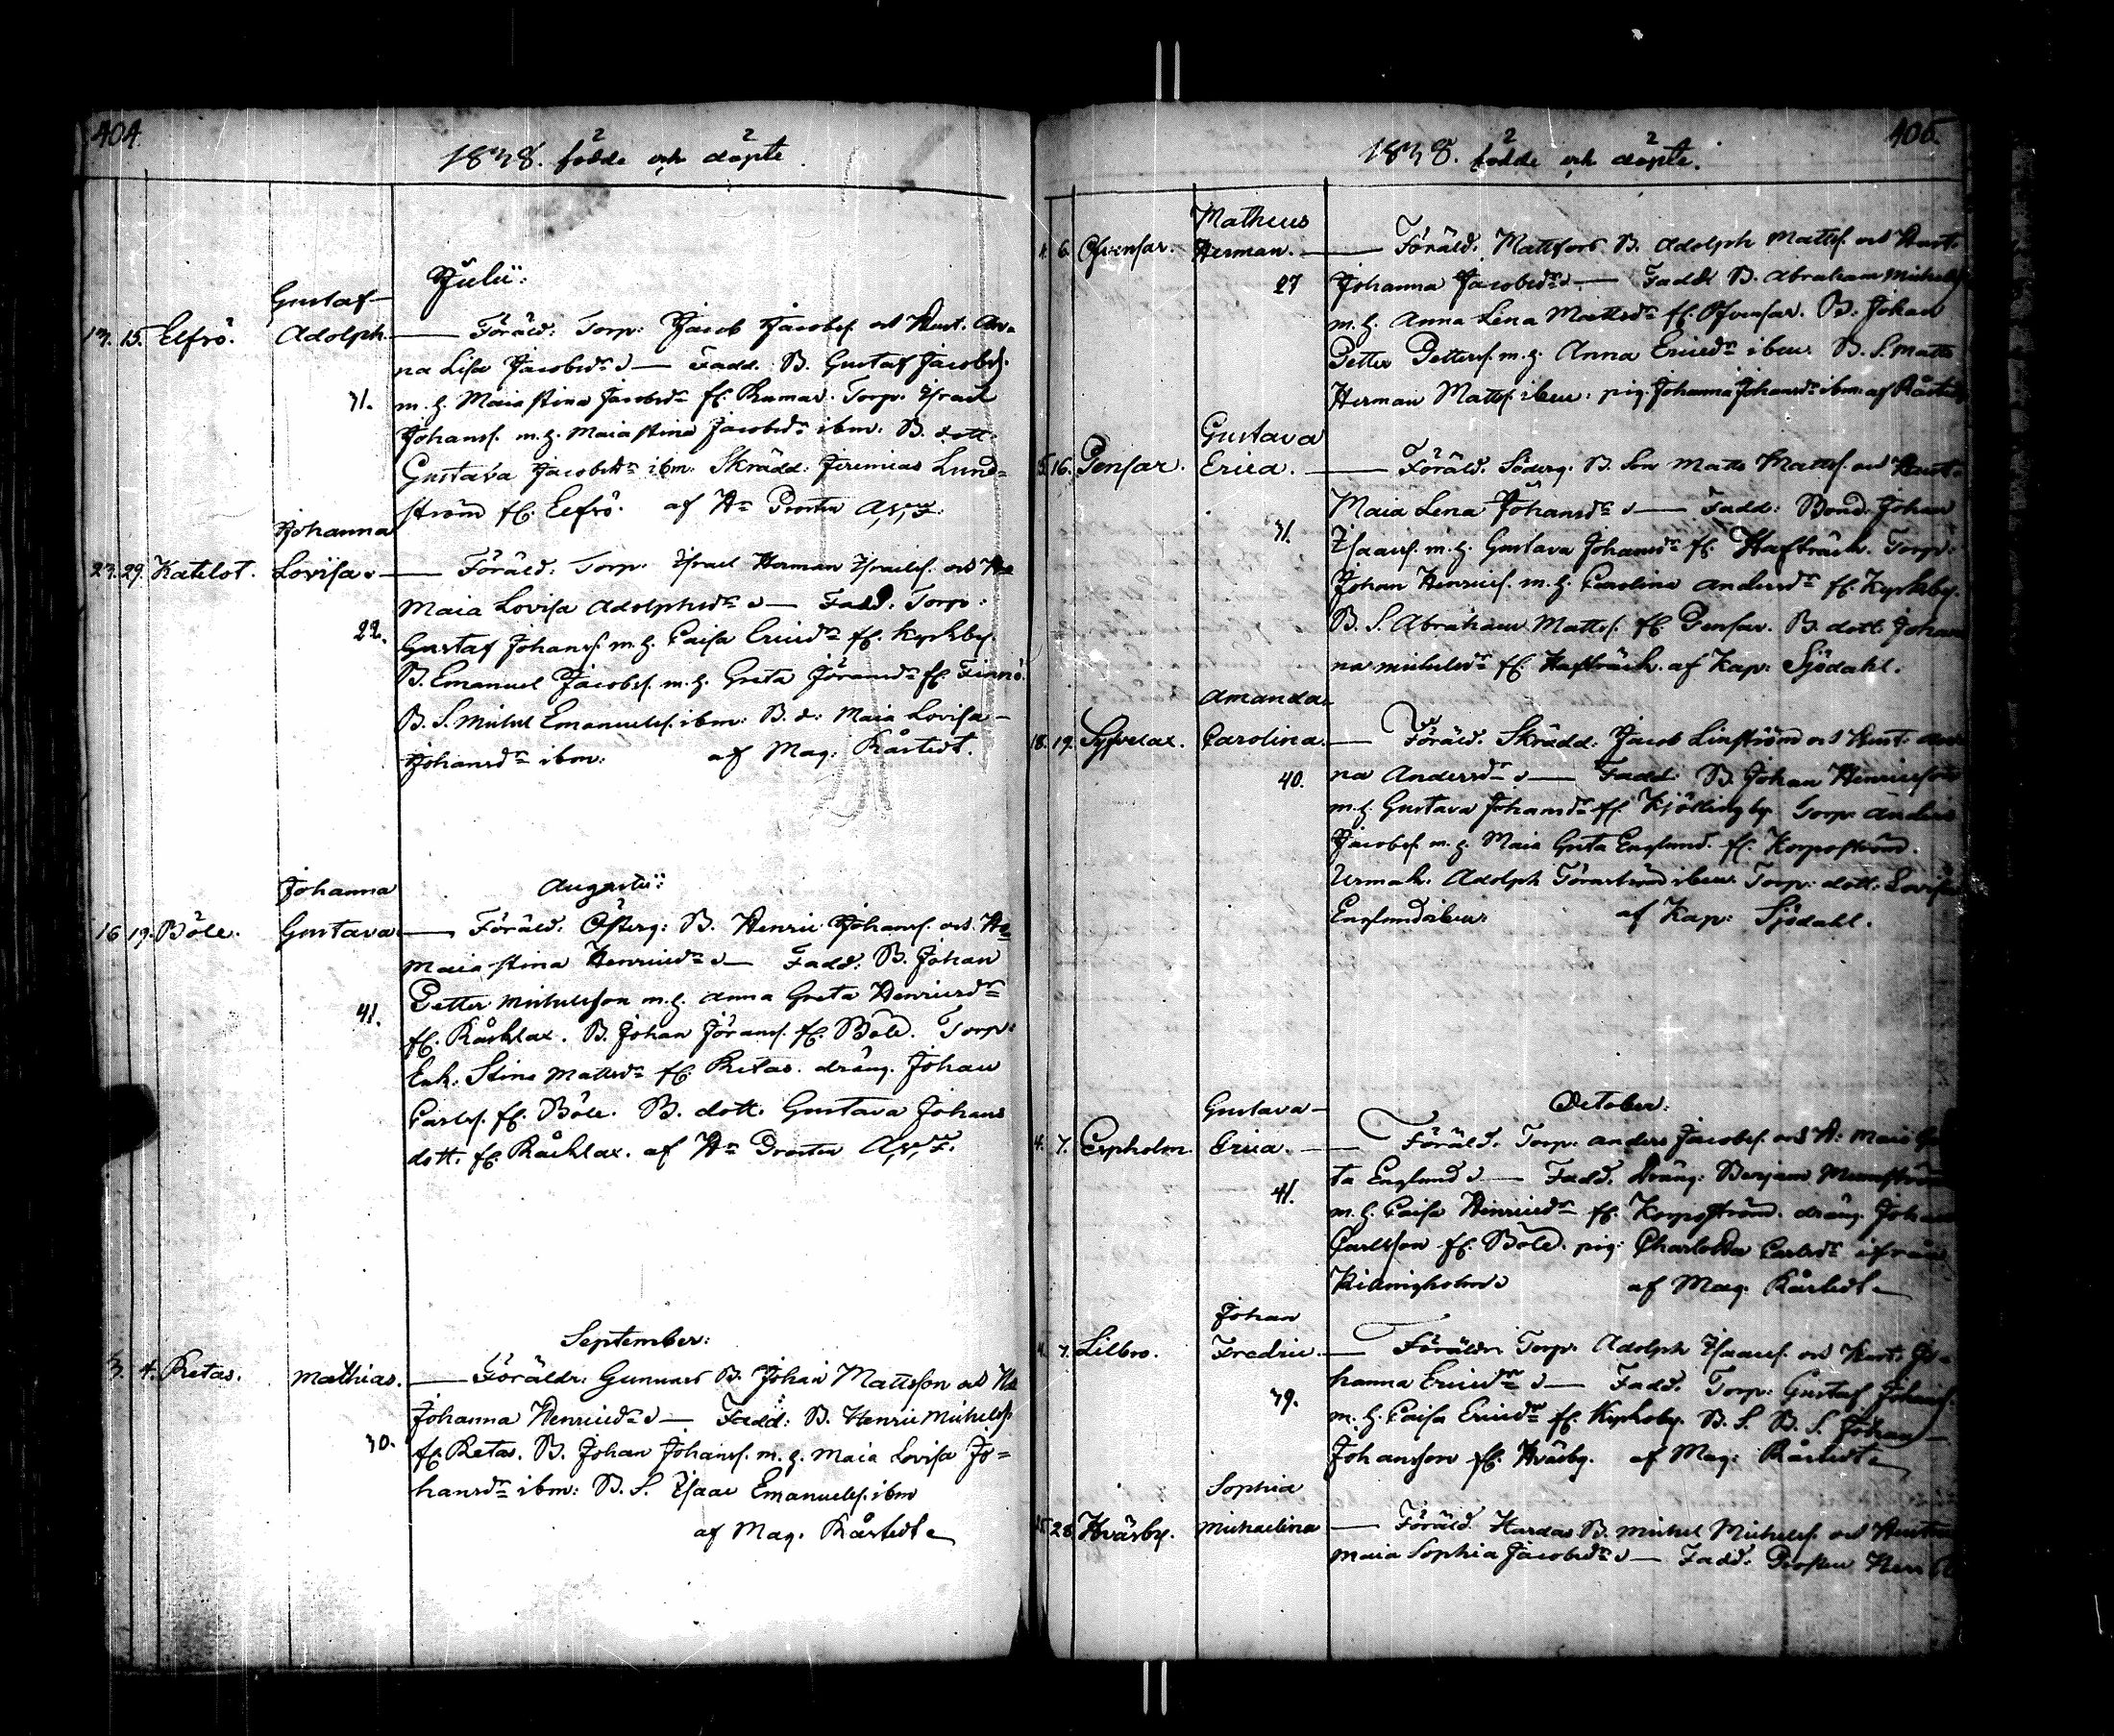 404.
1838. födde och döpte.
Julii:
Gustaf
13. 15. Elfsö. Adolph. — Föräld: Torp: Jacob Jacobss. och Hust. An-
na Lisa Jacobsdr — Fadd. B. Gustaf Jacobss.
31. m. h. Maia Stina Jacobsdr fr. Rumar. Torp. Israel
Johanss. m. h. Maia Stina Jacobsdr ibm. B. dott.
Gustava Jacobsdr ibm. Skrädd: Jeremias Lund-
ström fr. Elfsö. af Hr Prosten
Johanna
23. 29. Katelot. Lovisa — Föräld: Torp. Israel Herman Israelss. och Hu
Maia Lovisa Adolphsdr — Fadd. Torp:
22. Gustaf Johanss. m. h. Caisa Ericsdr fr. Kyrkby.
B. Emanuel Jacobss. m. h. Greta Jöransdr fr. Finnö.
B. S. Michel Emanuelss. ibm: B. d: Maia Lovisa
Johansdr ibm: af Mag: Kårstedt.
Augustii:
Johanna
16 19. Böle. Gustava — Föräld. Österg: B. Henric Johanss. och Hu
Maia Stina Henricsdr — Fadd: B. Johan
Petter Michelsson m. h. Anna Greta Henricsdr
41. fr. Kåhlax. B. Johan Jöranss. fr. Böle. Torp:
Enk. Stina Mattsdr fr. Retas. dräng. Johan
Carlss. fr. Böle. B. dott. Gustava Johans
dott. fr. Kåhlax. af Hr Prosten
September:
3. 4. Retas. Mathias. — Föräldr: Gunnars B. Johan Mattsson och Hu
Johanna Henricsdr — Fadd: B. Henric Michelss.
30. fr. Retas. B. Johan Johanss. m. h. Maia Lovisa Jo-
hansdr ibm: B. S. Isaac Emanuelss. ibm
af Mag. Kårstedt
405.
1838. födde och döpte.
Matheus
6. Ofvensar. Herman. — Föräld. Mattfors B. Adolph Mattss. och Hust.
27 Johanna Jacobsdr — Fadd. B. Abraham Michelss.
m. h. Anna Lena Mattsdr fr. Ofvensar. B. Johan
Petter Petterss. m. h. Anna Ericsdr ibm. B. S. Matts
Herman Mattss. ibm: pig. Johanna Johansdr ibm. af Kårstedt
Gustava
15. 16. Pensar. Erica. — Föräld. Söderg. B. Son Matts Mattss. och Hust.
Maia Lena Johansdr — Fadd: Bond. Johan
31. Isaacss. m. h. Gustava Johansdr fr. Hafträsk. Torp:
Johan Henricss. m. h. Carolina Andersdr fr. Kyrkby.
B. S. Abraham Mattss. fr. Pensar. B. dott. Johan
na Michelsdr fr. Hafträsk. af Kap: Sjödahl.
Amanda
18. 19. Syvelax. Carolina. — Föräld. Skrädd: Jacob Linström och Hust. An
na Andersdr — Fadd. B. Johan Henricsson
40. m. h. Gustava Johansdr fr. Kjöklingby Torp: Anders
Jacobss. m. h. Maia Greta Englund. fr. Korpoström.
Urmak. Adolph Törnström ibm. Torp: dott. Lovisa
Englund ibm. af Kap: Sjödahl.
October:
Gustava
4. 7. Espholm. Erica. — Föräld. Torp. Anders Jacobss. och H: Maia Gre
ta Englund — Fadd. dräng: Benjam
41. m. h. Caisa Henricsdr fr. Korpoström. dräng. Johan
Carlsson fr. Böle. pig: Charlotta Carlsdr ifrån
af Mag. Kårstedt
Johan
4. 7. Lilbro. Fredric. — Föräldr. Torp. Adolph Isaacss. och Hust. Jo-
hanna Ericsdr — Fadd. Torp: Gustaf Johanss.
39. m. h. Caisa Ericsdr fr. Kyrkoby. B. S. B. S. Johan
Johansson fr. Hväsby. af Mag: Kårstedt
Sophia
28. Hväsby. Michaelina — Föräld. Hardas B. Michel Michelss. och Hustru
Maia Sophia Jacobsdr — Fadd. Prosten Herr